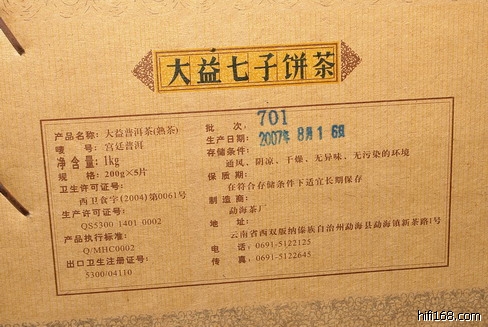 大益七子饼茶
产品名称：大益普洱茶(熟茶)
唛 号：宫廷普洱
净含量：1kg
规 格：200g×5片
卫生许可证号：
西卫食字(2004)第0061号
生产许可证号：
QS5300 1401 0002
产品执行标准：
Q/MHC0002
出口卫生注册证号：
5300/04110
批 次：701
生产日期：2007年 8月16日
存储条件：
通风、阴凉、干燥、无异味、无污染的环境
保质期：
在符合存储条件下适宜长期保存
制造商：
勐海茶厂
地 址：
云南省西双版纳傣族自治州勐海县勐海镇新茶路1号
电 话：0691-5122125
传 真：0691-5122645
hifi168.com